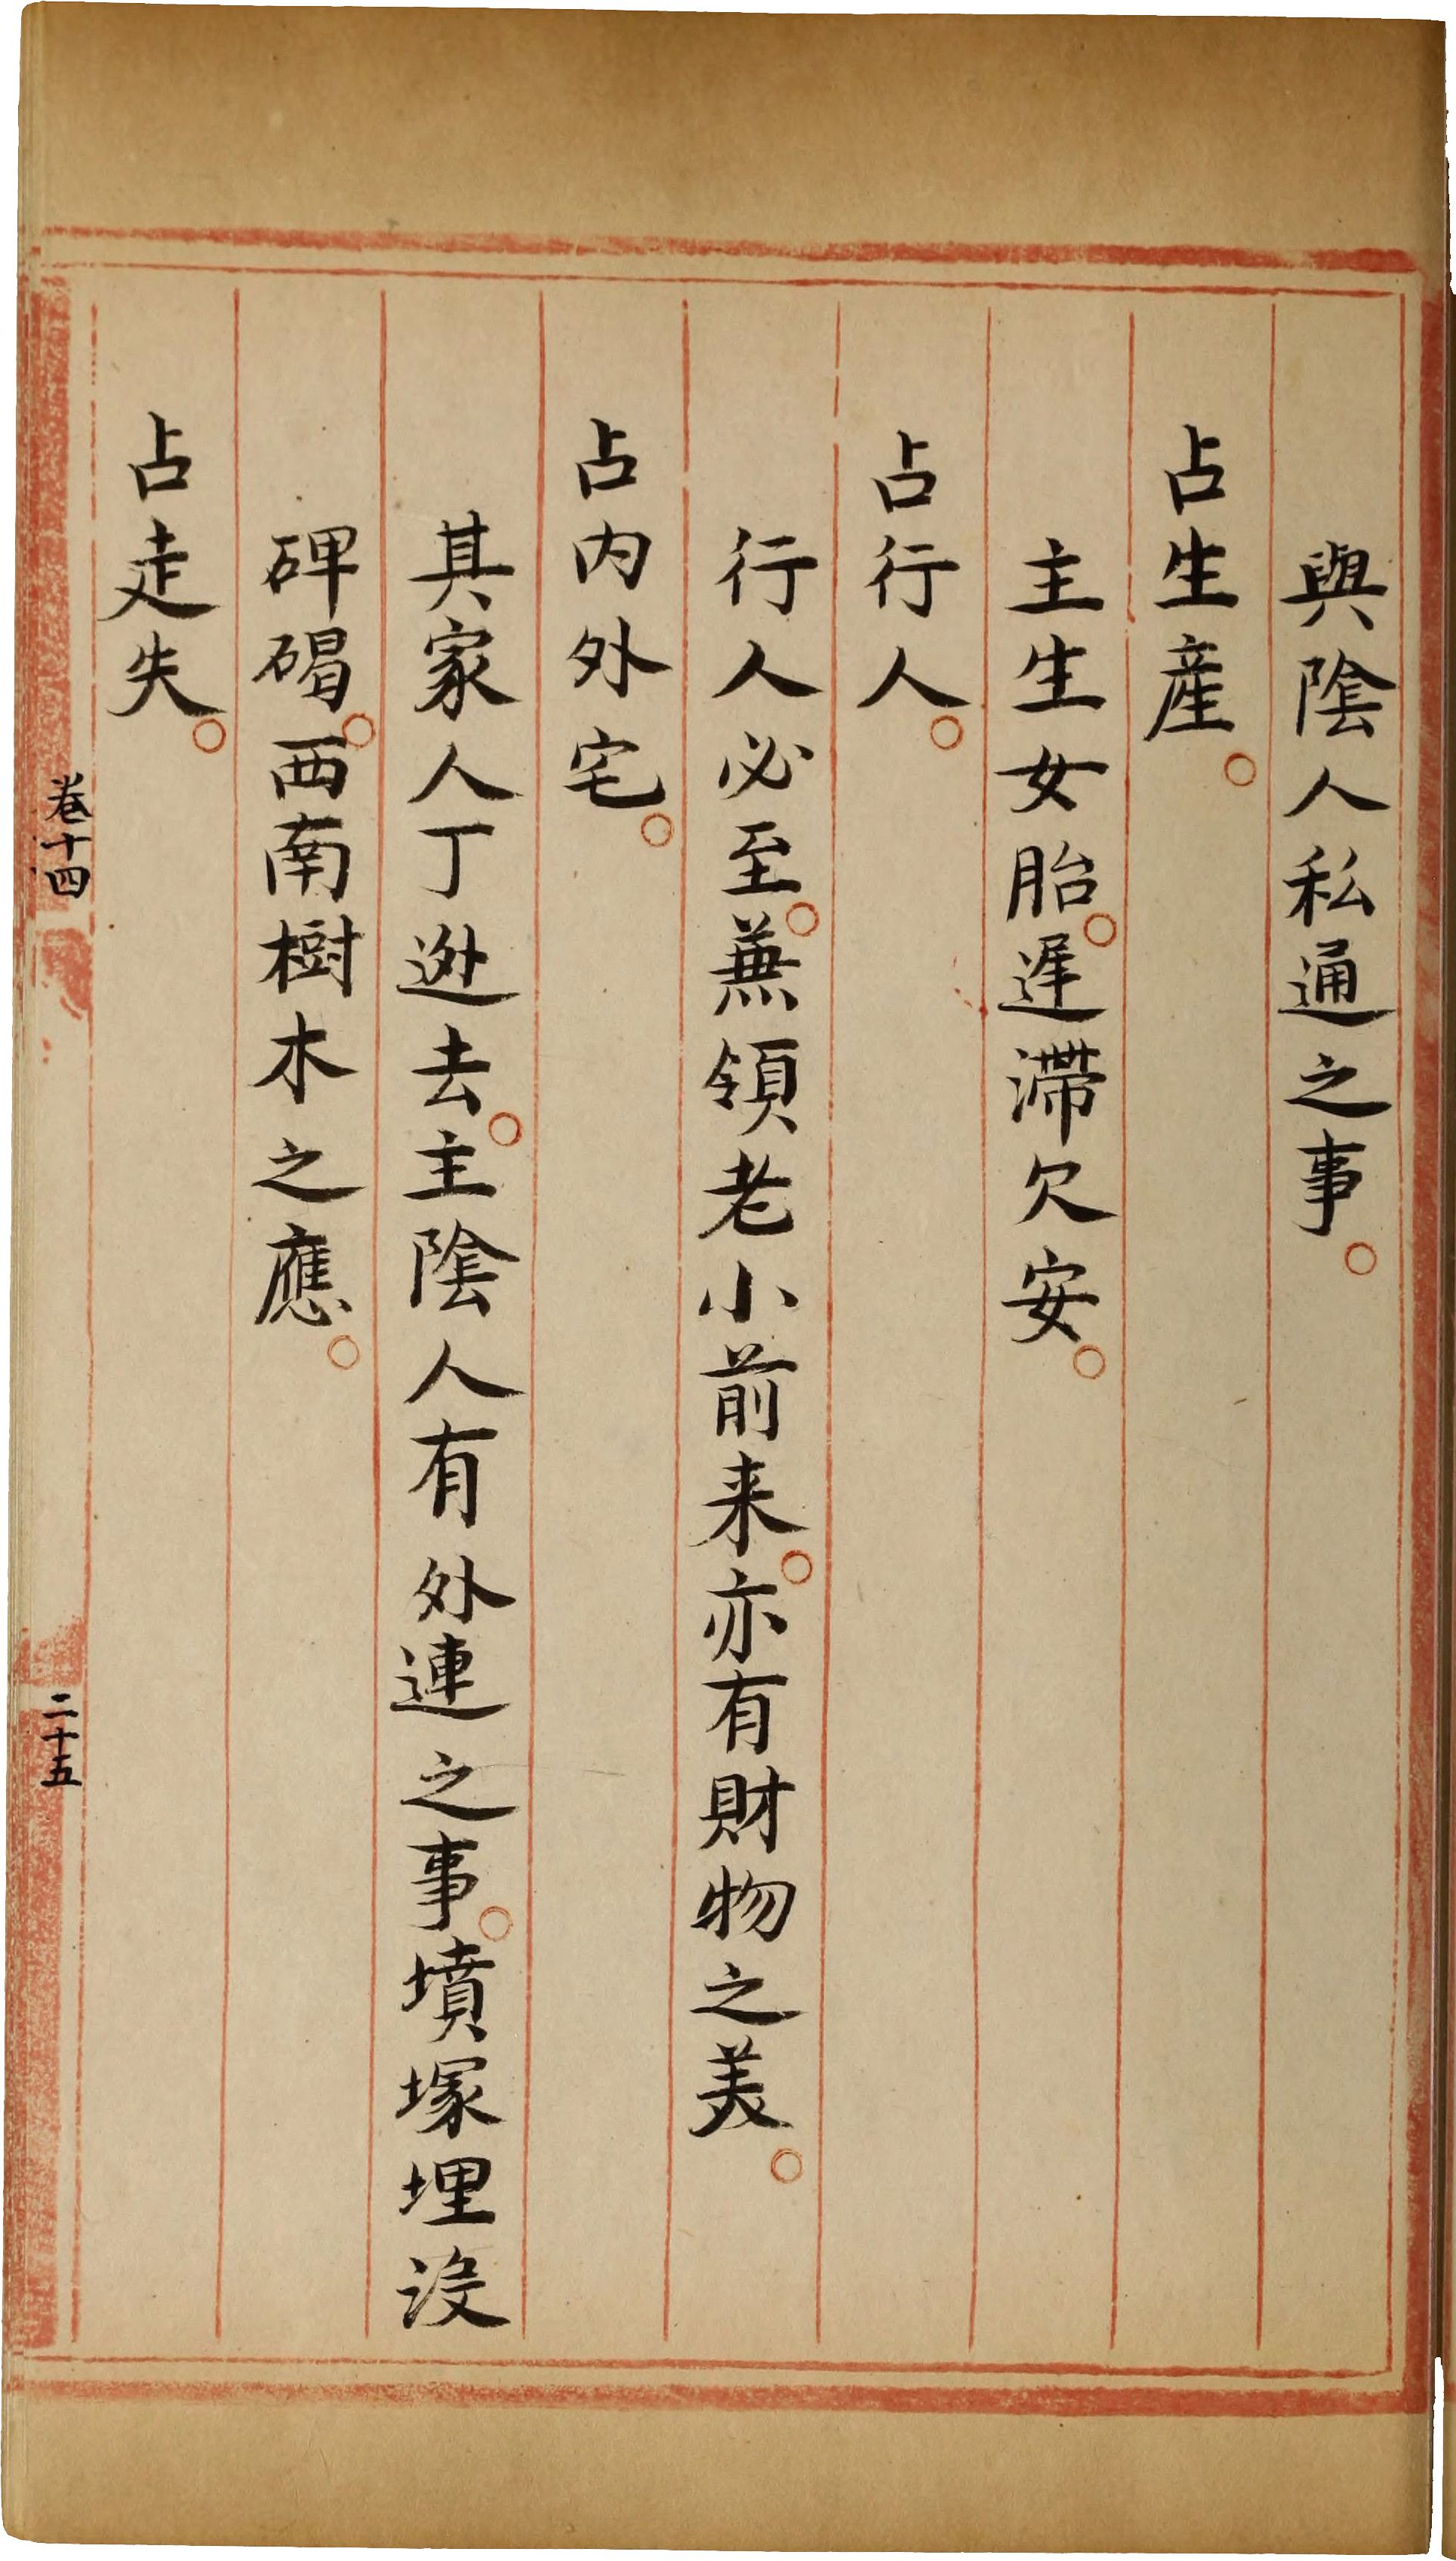 與陰人私通之事。
占生產。
主生女胎。遲滯欠安。
占行人。
行人必至。兼領老小前来。亦有財物之美。
占内外宅。
其家人丁逊去。主陰人有外連之事。墳塚埋没
碑碣。西南樹木之應。
占走失。
卷十四
二十五